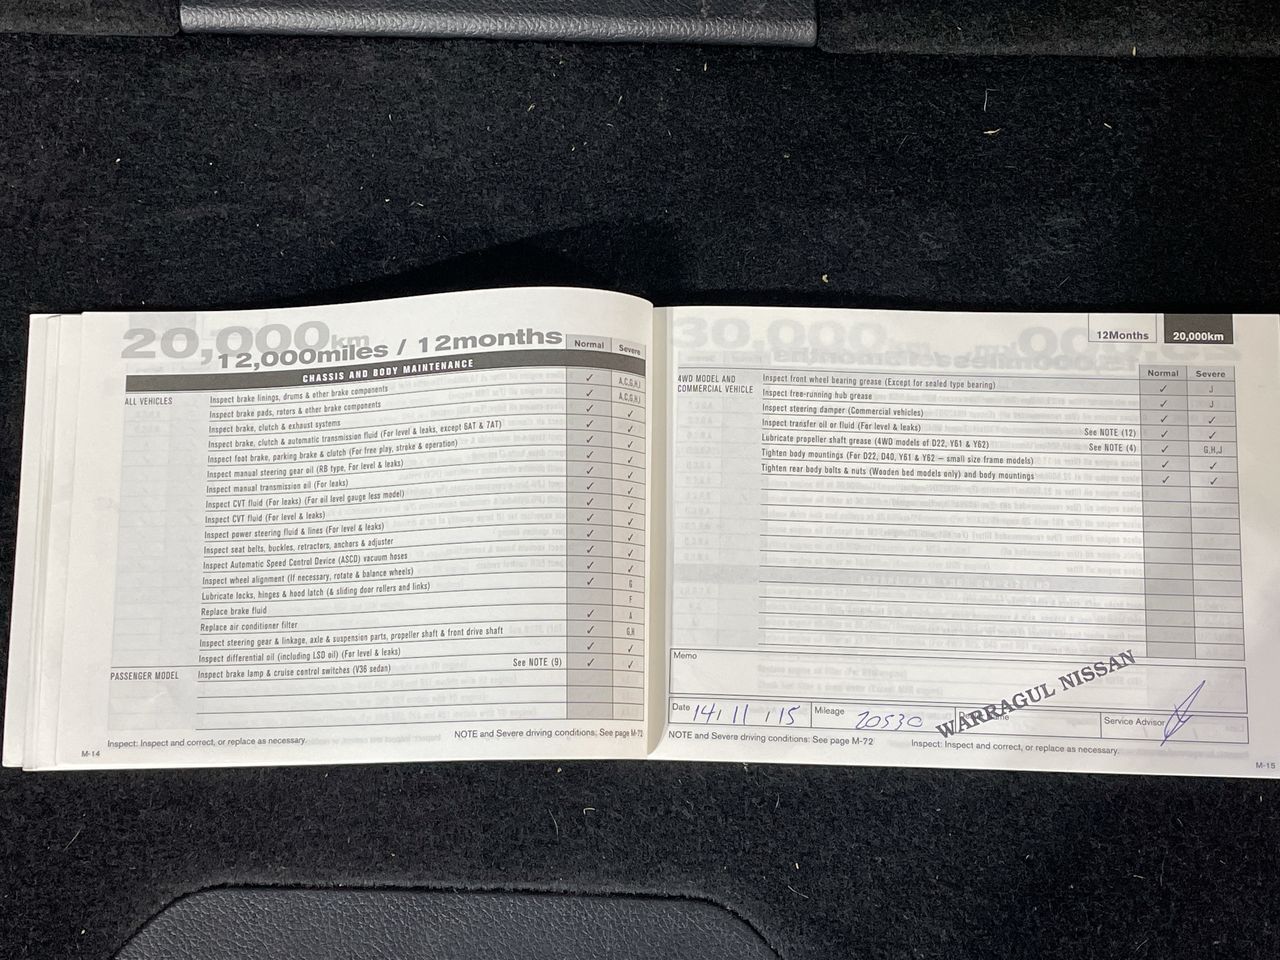 20,000km
12,000miles / 12months
Normal
Severe
CHASSIS AND BODY MAINTENANCE
ALL VEHICLES
Inspect brake linings, drums & other brake components
✓
A,C,G,H,I
Inspect brake pads, rotors & other brake components
✓
A,C,G,H,I
Inspect brake, clutch & exhaust systems
✓
✓
Inspect brake, clutch & automatic transmission fluid (For level & leaks, except 6AT & 7AT)
✓
✓
Inspect foot brake, parking brake & clutch (For free play, stroke & operation)
✓
✓
Inspect manual steering gear oil (RB type, For level & leaks)
✓
✓
Inspect manual transmission oil (For leaks)
✓
✓
Inspect CVT fluid (For leaks) (For oil level gauge less model)
✓
✓
Inspect CVT fluid (For level & leaks)
✓
✓
Inspect power steering fluid & lines (For level & leaks)
✓
✓
Inspect seat belts, buckles, retractors, anchors & adjuster
✓
✓
Inspect Automatic Speed Control Device (ASCD) vacuum hoses
✓
✓
Inspect wheel alignment (If necessary, rotate & balance wheels)
✓
✓
Lubricate locks, hinges & hood latch (& sliding door rollers and links)
✓
G
Replace brake fluid
F
Replace air conditioner filter
✓
A
Inspect steering gear & linkage, axle & suspension parts, propeller shaft & front drive shaft
✓
G,H
Inspect differential oil (including LSD oil) (For level & leaks)
See NOTE (9)
✓
✓
PASSENGER MODEL
Inspect brake lamp & cruise control switches (V36 sedan)
Inspect: Inspect and correct, or replace as necessary.
NOTE and Severe driving conditions: See page M-72
M-14
12Months
20,000km
Normal
Severe
4WD MODEL AND COMMERCIAL VEHICLE
Inspect front wheel bearing grease (Except for sealed type bearing)
✓
J
Inspect free-running hub grease
✓
J
Inspect steering damper (Commercial vehicles)
✓
✓
Inspect transfer oil or fluid (For level & leaks)
See NOTE (12)
✓
✓
Lubricate propeller shaft grease (4WD models of D22, Y61 & Y62)
See NOTE (4)
✓
G,H,J
Tighten body mountings (For D22, D40, Y61 & Y62 – small size frame models)
✓
✓
Tighten rear body bolts & nuts (Wooden bed models only) and body mountings
✓
✓
Memo
Date 14/ 11 / 15
Mileage 20530
WARRAGUL NISSAN
Service Advisor
NOTE and Severe driving conditions: See page M-72
Inspect: Inspect and correct, or replace as necessary.
M-15